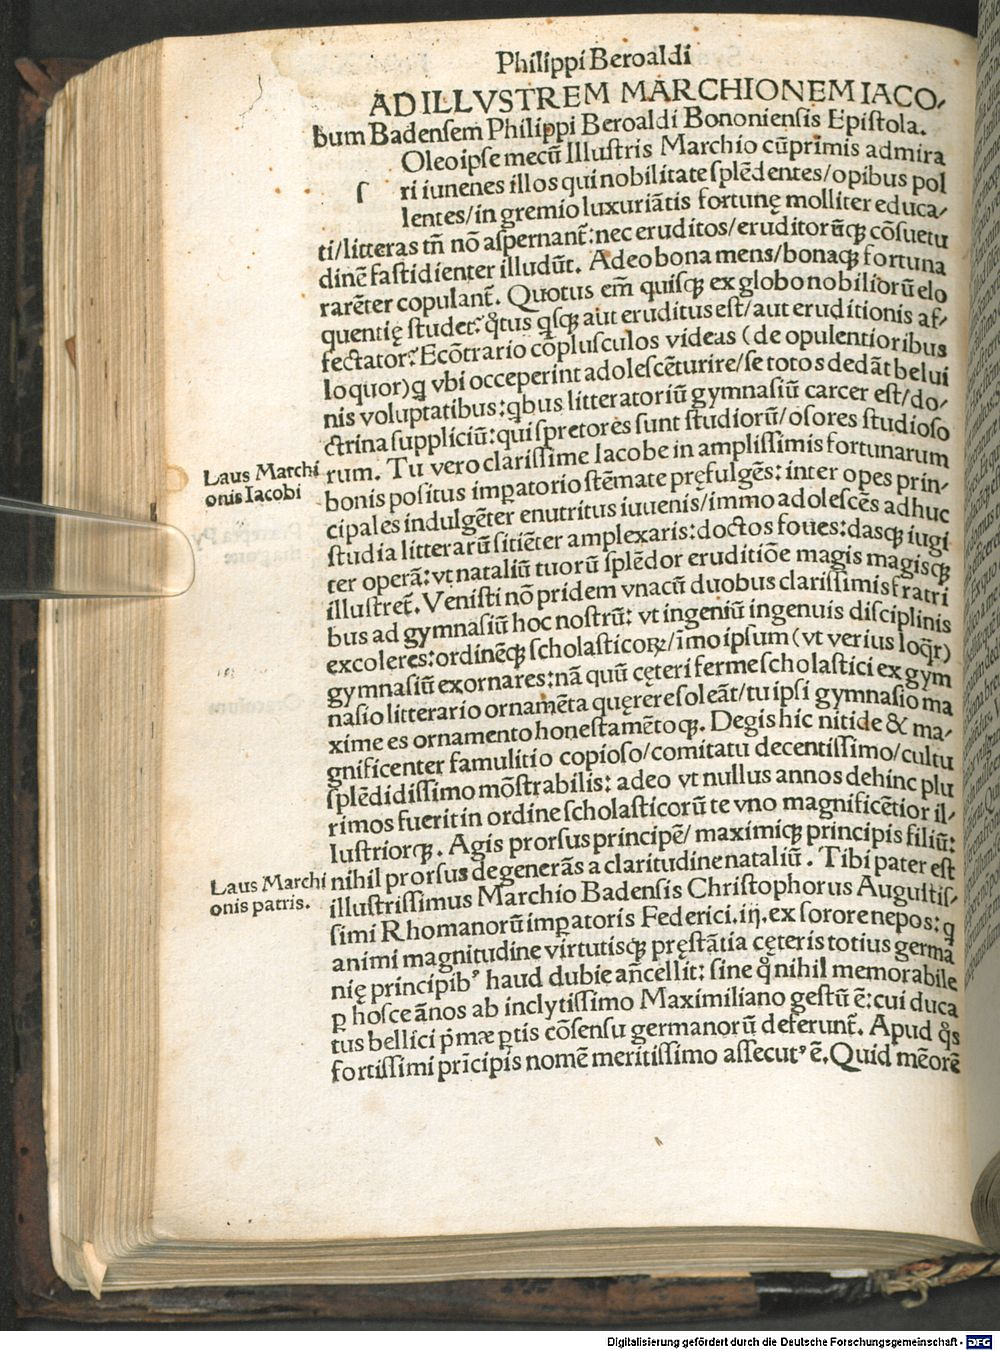 Philippi Beroaldi
AD ILLVSTREM MARCHIONEM IACO/
bum Badenſem Philippi Beroaldi Bononienſis Epiſtola.
Oleo ipſe mecũ Illuſtris Marchio cũprimis admira
ſ ri iunenes illos qui nobilitate ſplẽdentes/opibus pol
lentes/in gremio luxuriãtis fortunę molliter educa/
ti/litteras tñ nõ aſpernant᷑:nec eruditos/eruditorũꝙ cõſuetu
dinẽ faſtidienter illudũt. Adeo bona mens/bonaꝙ fortuna
rarẽter copulant᷑. Quotus em̃ quiſꝙ ex globo nobiliorũ elo
quentię ſtudet? qͦtus qſꝙ aut eruditus eſt/aut eruditionis af/
fectator? Ecõtrario cõpluſculos videas (de opulentioribus
loquor)q vbi occeperint adoleſcẽturire/ſe totos dedãt belui
nis voluptatibus:qbus litteratoriũ gymnaſiũ carcer eſt/do/
ctrina ſuppliciũ:qui ſpretores ſunt ſtudiorũ/oſores ſtudioſo
rum. Tu vero clariſſime Iacobe in ampliſſimis fortunarum
Laus Marchi
onis Iacobi
bonis poſitus imꝑatorio ſtẽmate pręfulgẽs: inter opes prin/
cipales indulgẽter enutritus iuuenis/immo adoleſcẽs adhuc
ſtudia litterarũ ſitiẽter amplexaris:doctos foues:dasꝙ iugi
ter operã: vt nataliũ tuorũ ſplẽdor eruditiõe magis magisꝙ
illuſtret᷑. Veniſti nõ pridem vnacũ duobus clariſſimis fratri
bus ad gymnaſiũ hoc noſtrũ: vt ingeniũ ingenuis diſciplinis
excoleres:ordinẽꝙ ſcholaſticoꝝ/ĩmo ipſum (vt verius loqr̃)
gymnaſiũ exornares:nã quũ cęteri ferme ſcholaſtici ex gym
naſio litterario ornamẽta quęrere ſoleãt/tu ipſi gymnaſio ma
xime es ornamento honeſtamẽtoꝙ. Degis hic nitide & ma/
gnificenter famulitio copioſo/comitatu decentiſſimo/cultu
ſplẽdidiſſimo mõſtrabilis: adeo vt nullus annos dehinc plu
rimos fuerit in ordine ſcholaſticorũ te vno magnificẽtior il/
luſtriorꝙ. Agis prorſus principẽ/ maximiꝙ principis filiũ:
nihil prorſus degenerãs a claritudine nataliũ. Tibi pater eſt
Laus Marchi
onis patris.
illuſtriſſimus Marchio Badenſis Chriſtophorus Auguſtiſ/
ſimi Rhomanorũ imꝑatoris Federici.iij.ex ſorore nepos: q
animi magnitudine virtutisꝙ pręſtãtia cęteris totius germa
nię principibꝰ haud dubie añcellit: ſine qͦ nihil memorabile
ꝑ hoſce ãnos ab inclytiſſimo Maximiliano geſtũ ẽ: cui duca
tus bellici p̃mæ ꝑtis cõſenſu germanorũ deferunt᷑. Apud qͦs
fortiſſimi prĩcipis nomẽ meritiſſimo aſſecutꝰ ẽ. Quid mẽorẽ
Digitalisierung gefördert durch die Deutsche Forschungsgemeinschaft - DFG